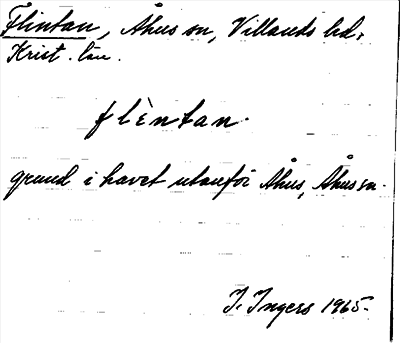 Flintan, Åhus sn, Villands hd,
Krist. län.
flèntan.
grund i havet utanför Åhus, Åhus sn.
I. Ingers 1965.